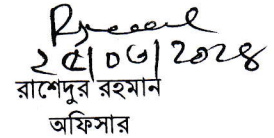 ২৫|০৩|২০২৪
রাশেদুর রহমান
অফিসার